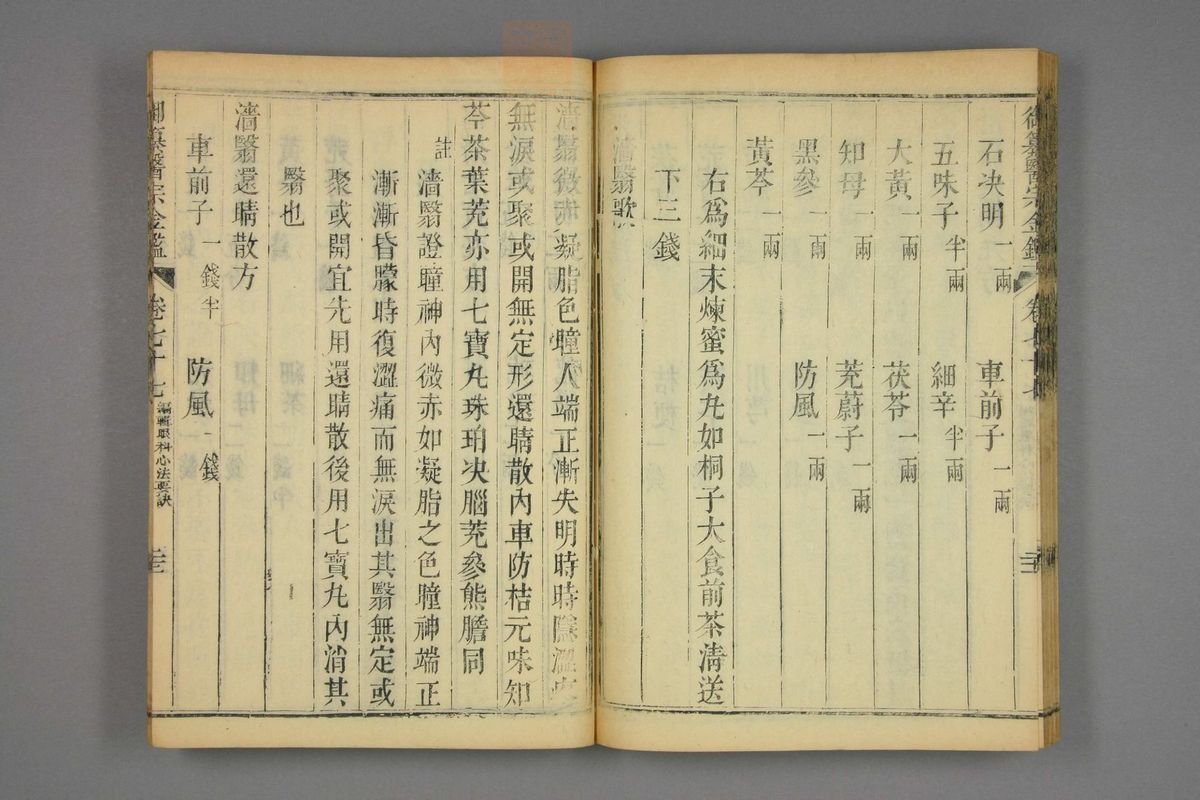 御纂醫宗金鑑 卷七十七
石決明一兩 車前子一兩
五味子半兩 細辛半兩
大黃一兩 茯苓一兩
知母一兩 茺蔚子一兩
黑參一兩 防風一兩
黃芩一兩
右為細末煉蜜為丸如桐子大食前茶清送
下三錢
濇翳歌
濇翳微赤凝脂色瞳人端正漸失明時時隱澀
無淚或聚或開無定形還睛散內車防桔元味知
芩茶葉茺亦用七寶丸珠珀决腦茺參熊膽同
註 濇翳證瞳神內微赤如凝脂之色瞳神端正
漸漸昏朦時復澀痛而無淚出其翳無定或
聚或開宜先用還睛散後用七寶丸內消其
翳也
濇翳還睛散方
車前子一錢半 防風一錢
御纂醫宗金鑑 卷七十七 編輯眼科心法要訣